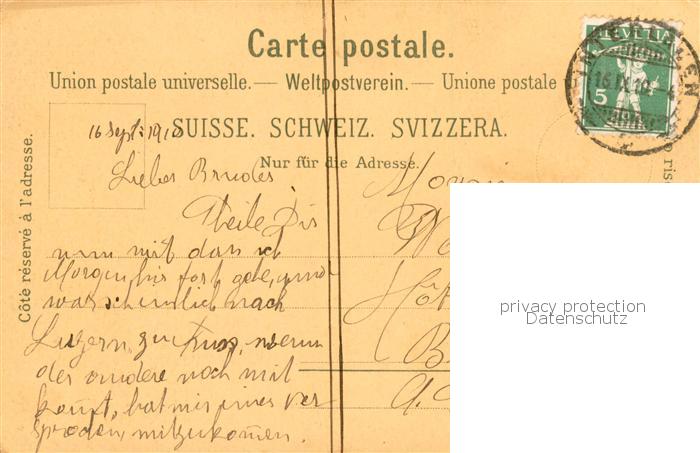 Carte postale.
Union postale universelle. — Weltpostverein. — Unione postale u
SUISSE. SCHWEIZ. SVIZZERA.
Nur für die Adresse.
Côté réservé à l'adresse.
HELVETIA
5
INTERLAKEN
16.IX.10.-4
16 Sept. 1910
Lieber Bruder
Theile Dir
nun mit das ich
Morgen hir fort gehe, und
warscheinlich nach
Luzern, zu Fuss, wenn
der andere noch mit
kommt, hat mir einer ver
sproden, mitzukommen.
Hôt
B
privacy protection
Datenschutz